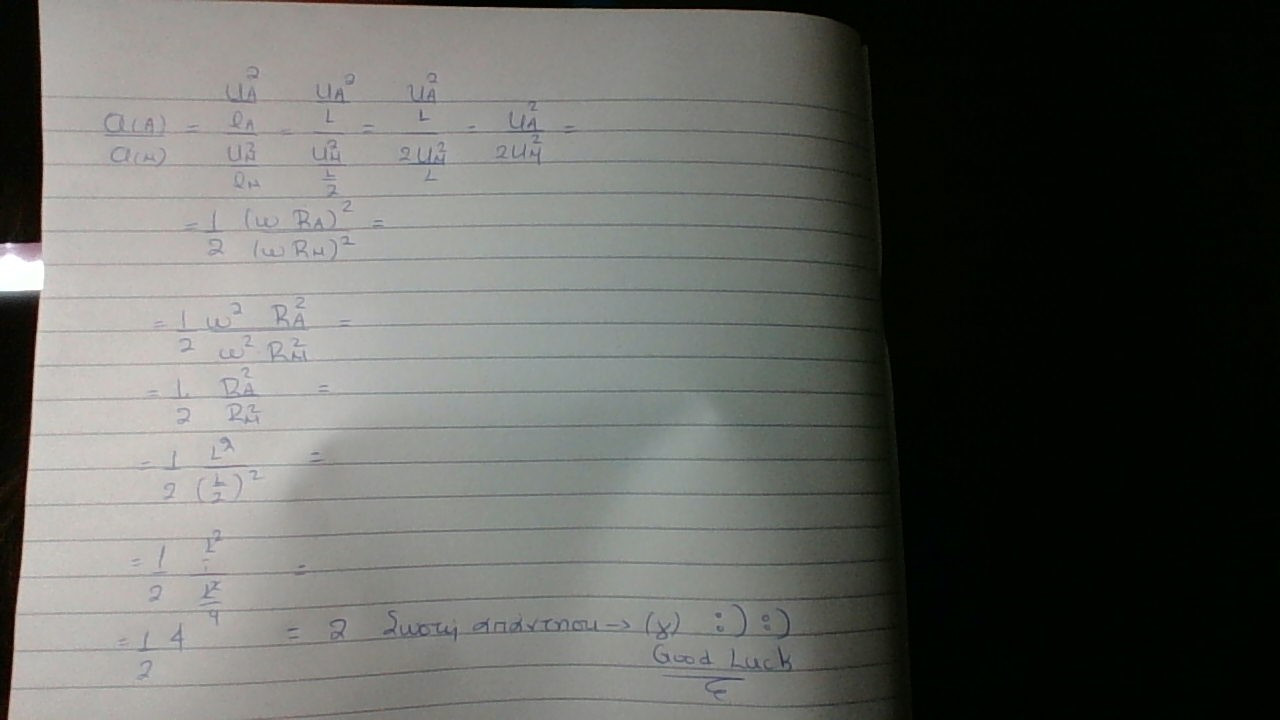 α(A)/α(M) = (U_A²/R_A)/(U_M²/R_M) = (U_A²/L)/(U_M²/(L/2)) = (U_A²/L)/(2U_M²/L) = U_A²/2U_M² =
= 1/2 (ω R_A)²/(ω R_M)² =
= 1/2 ω² R_A²/ω² · R_M² =
= 1/2 R_A²/R_M² =
= 1/2 L²/(L/2)² =
= 1/2 L²/(L²/4) =
= 1/2 4 = 2 Σωστή απάντηση → (γ) :) :)
Good Luck